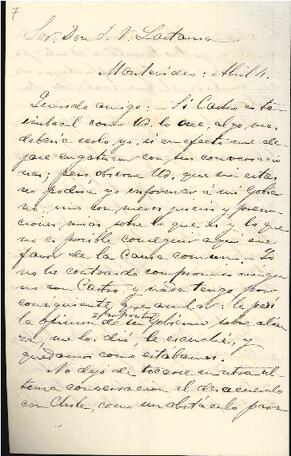 7
Sor. Don J. V. Lastarria
Montevideo: Abril 4.
Querido amigo: Si Castro está
imbecil como U. lo cree, algo mas
debería serlo yo, si en efecto me de-
jase engatuzar con sus conversacio-
nes; pero observe U. que sin estas
no podria yo informar a mi Gobier-
no, sino con meros juicios y presun-
ciones mias sobre lo que es y lo que
no es posible conseguir aqui en
favor de la Causa comun. Yo
no he contraido compromiso ningu-
no con Castro, y nada tengo por
consiguiente que anular: le pedí
la opinion de su Gobierno sobre alian-
za, me la dió, le escuché, y
quedamos como estabamos.
No dejó de tocarse en nuestra úl-
tima conversacion el desacuerdo
con Chile, como un obstáculo para